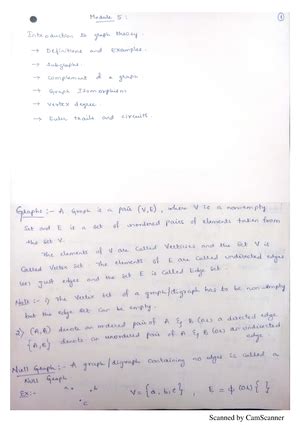 Module 5:
1
Introduction to graph theory.
→ Definitions and Examples.
→ Subgraphs
→ Complement of a graph
→ Graph Isomorphism
→ Vertex degree.
→ Euler trails and circuits
Graphs :- A Graph is a pair (V,E), where V is a nonempty
set and E is a set of unordered pairs of elements taken from
the set V.
The elements of V are called Vertices and the set V is
called Vertex set. The elements of E are called undirected edges
(or) just edges and the set E is called Edge set.
Note :- 1) The vertex set of a graph/digraph has to be nonempty
but the edge set can be empty.
2) (A,B) denote an ordered pair of A & B (or) a directed edge.
{A,B} denote an unordered pair of A & B (or) an undirected
edge
Null Graph :- A graph/digraph containing no edges is called a
Null Graph.
Ex:- •a •b V = {a, b, c}, E = ϕ (or) { }.
•c
Scanned by CamScanner